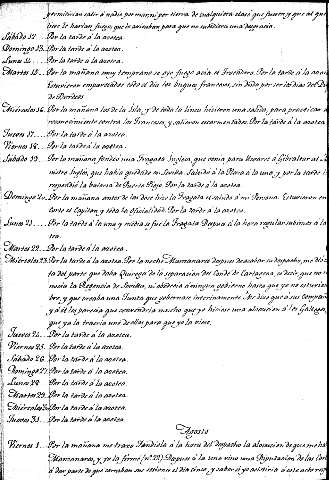 permitieran salir á nadie por mar ni por tierra de qualquiera clase que fueren y que al que
hiere lo harian fuego, que lo avisaban para que no sucediera una desgracia.
Sábado 12. Por la tarde á la azotea.
Domingo 13. Por la tarde á la azotea.
Lunes 14. Por la tarde á la azotea.
Martes 15. Por la mañana muy temprano se oyo fuego acia el Trocadero. Por la tarde á la azotea
Estuvieron empavesados todo el dia los buques franceses, sin duda por ser los dias del Duque
de Burdeos.
Miércoles 16. Por la mañana los de la Isla, y de toda la linea hicieron una salida, para practicar un
reconocimiento contra los Franceses, y salieron escarmentados. Por la tarde á la azotea.
Jueves 17. Por la tarde á la azotea.
Viernes 18. Por la tarde á la azotea.
Sábado 19. Por la mañana fondeó una Fragata Inglesa, que venia para llevarse á Gibraltar al
nistro Inglés, que habia quedado en Sevilla. Saludó á la Plaza á la una, y por la tarde
respondió la bateria de Puerta Piojo. Por la tarde á la azotea
Domingo 20. Por la mañana antes de las doce hizo la Fragata el saludo á mi Persona. Estuvieron en
Corte el Capitan y toda la oficialidad. Por la tarde á la azotea.
Lunes 21. Por la tarde á la una y media se fue la Fragata. Despues á la hora regular subimos á la
tea.
Martes 22. Por la tarde á la azotea.
Miércoles 23. Por la tarde á la azotea. Por la noche Manzanares despues de acabar su despacho, me dio
ta del parte que daba Quiroga de la separacion del Conde de Cartagena, es decir, que no
nocia la Regencia de Sevilla, ni obedecia á ningun gobierno hasta que yo no estuviera
bre, y que creaba una Junta que gobernase interinamente. Me dixo que á sus compañeros
y á él les parecia que convendria mucho que yo hiciese una alocucion á los Gallegos,
que ya la traeria uno de ellos para que yo la viese.
Jueves 24. Por la tarde á la azotea.
Viernes 25. Por la tarde á la azotea.
Sábado 26. Por la tarde á la azotea.
Domingo 27. Por la tarde á la azotea.
Lunes 28. Por la tarde á la azotea.
Martes 29. Por la tarde á la azotea.
Miércoles 30. Por la tarde á la azotea.
Jueves 31. Por la tarde á la azotea.
Agosto
Viernes 1. Por la mañana me traxo Yandiola á la hora del despacho la alocucion de que me habló
Manzanares, y yo la firmé (nº 22). Despues á la una vino una Diputacion de las Cortes
á dar parte de que cerraban sus sesiones el dia cinco, y saber si yo asistiria á este acto